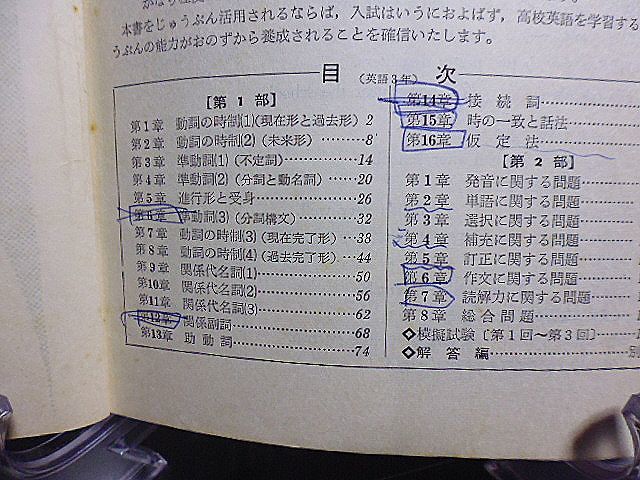 本書をじゅうぶん活用されるならば，入試はいうにおよばず，高校英語を学習する
うぶんの能力がおのずから養成されることを確信いたします。
目 (英語3年) 次
［第1部］
第1章 動詞の時制(1)(現在形と過去形) 2
第2章 動詞の時制(2)(未来形) 8
第3章 準動詞(1)(不定詞) 14
第4章 準動詞(2)(分詞と動名詞) 20
第5章 進行形と受身 26
第6章 準動詞(3)(分詞構文) 32
第7章 動詞の時制(3)(現在完了形) 38
第8章 動詞の時制(4)(過去完了形) 44
第9章 関係代名詞(1) 50
第10章 関係代名詞(2) 56
第11章 関係代名詞(3) 62
第12章 関係副詞 68
第13章 助動詞 74
第14章 接続詞
第15章 時の一致と話法
第16章 仮定法
［第2部］
第1章 発音に関する問題
第2章 単語に関する問題
第3章 選択に関する問題
第4章 補充に関する問題
第5章 訂正に関する問題
第6章 作文に関する問題
第7章 読解力に関する問題
第8章 総合問題
◇模擬試験〔第1回～第3回〕
◇解答編